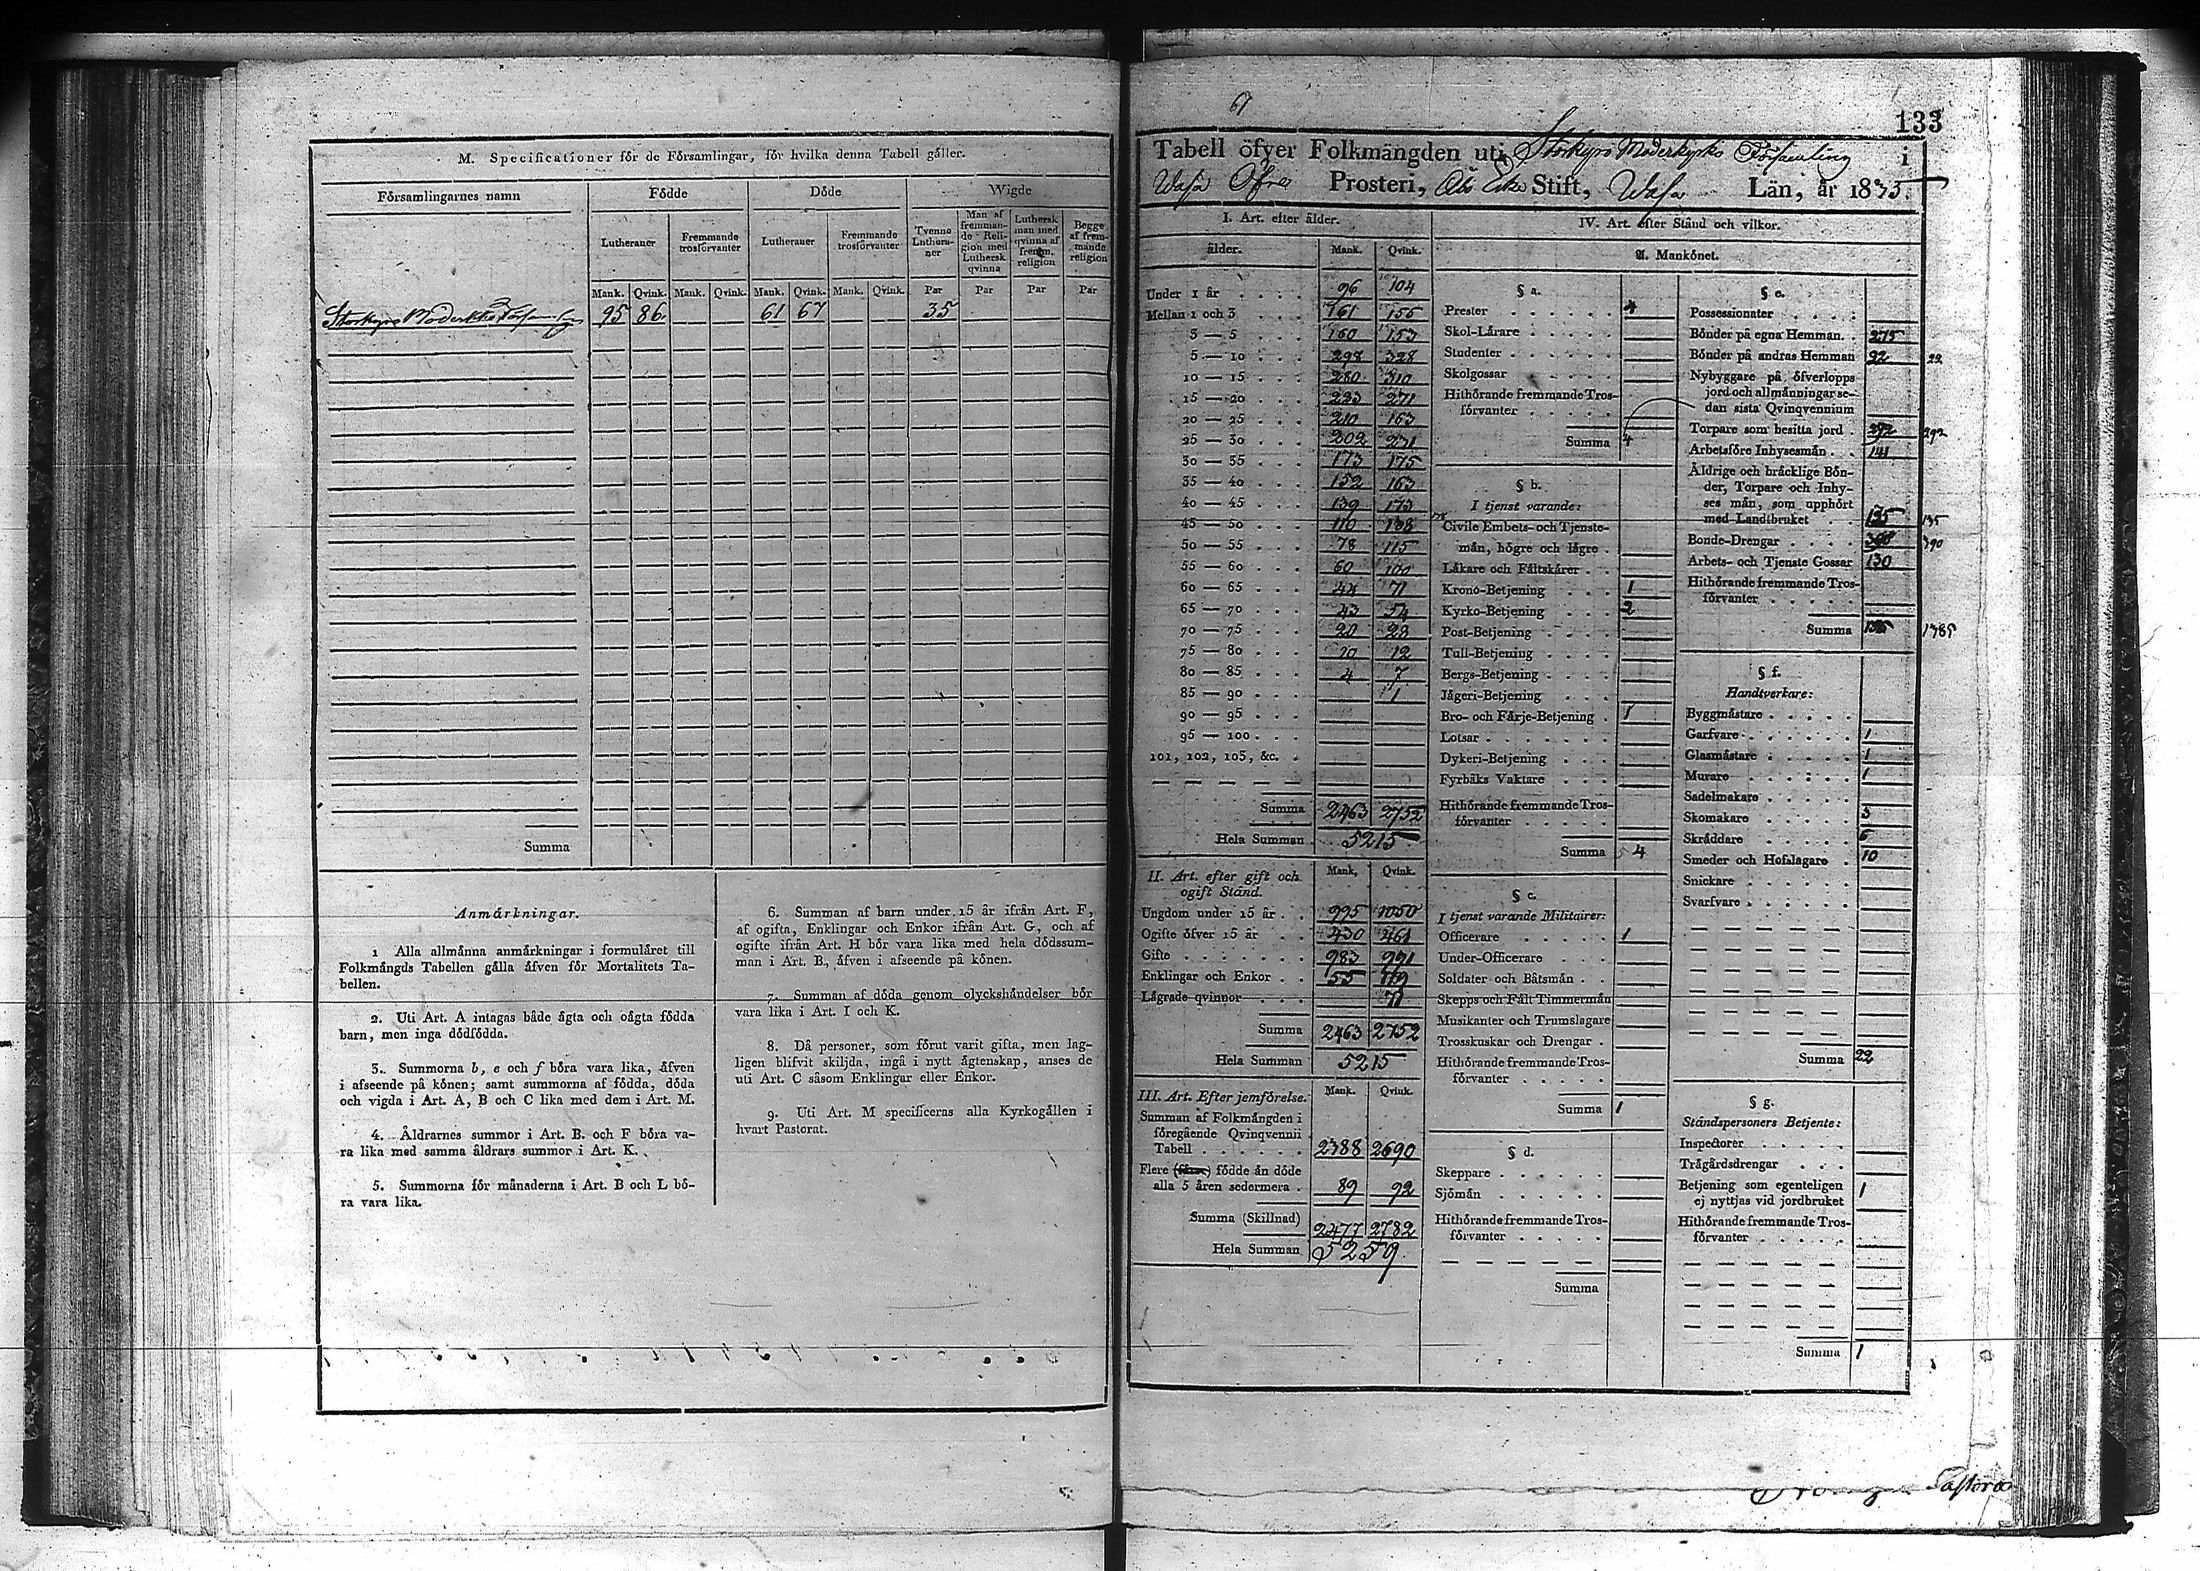 M. Specificationer för de Församlingar, för hvilka denna Tabell gäller.
Församlingarnes namn
Födde
Döde
Wigde
Lutheraner
Fremmande trosförvanter
Lutheraner
Fremmande trosförvanter
Tvenne Lutheraner
Man af fremmande Religion med Luthersk qvinna
Luthersk man med qvinna af fremm. religion
Begge af fremmande religion
Mank. Qvink. Mank. Qvink. Mank. Qvink. Mank. Qvink. Par Par Par Par
Storkyro 95 86 61 67 35
Summa
Anmärkningar.
1 Alla allmänna anmärkningar i formuläret till
Folkmängds Tabellen gälla äfven för Mortalitets Ta-
bellen.
2. Uti Art. A intagas både ägta och oägta födda
barn, men inga dödfödda.
3. Summorna b, e och f böra vara lika, äfven
i afseende på könen; samt summorna af födda, döda
och vigda i Art. A, B och C lika med dem i Art. M.
4. Åldrarnes summor i Art. B. och F böra va-
ra lika med samma åldrars summor i Art. K.
5. Summorna för månaderna i Art. B och L bö-
ra vara lika.
6. Summan af barn under 15 år ifrån Art. F,
af ogifta, Enklingar och Enkor ifrån Art. G, och af
ogifte ifrån Art. H bör vara lika med hela dödssum-
man i Art. B., äfven i afseende på könen.
7. Summan af döda genom olyckshändelser bör
vara lika i Art. I och K.
8. Då personer, som förut varit gifta, men lag-
ligen blifvit skiljda, ingå i nytt ägtenskap, anses de
uti Art. C såsom Enklingar eller Enkor.
9. Uti Art. M specificeras alla Kyrkogällen i
hvart Pastorat.
61
133
Tabell öfver Folkmängden uti Storkyro Moderkyrko Församling i
Wasa Öfre Prosteri, Åbo Erke Stift, Wasa Län, år 1835.
I. Art. efter ålder.
ålder. Mank. Qvink.
Under 1 år 96 104
Mellan 1 och 3 161 155
3 — 5 160 153
5 — 10 298 328
10 — 15 280 310
15 — 20 223 271
20 — 25 210 163
25 — 30 202 231
30 — 35 173 175
35 — 40 152 163
40 — 45 139 173
45 — 50 110 138
50 — 55 78 115
55 — 60 60 100
60 — 65 44 71
65 — 70 43 54
70 — 75 20 28
75 — 80 10 12
80 — 85 4 7
85 — 90 1
90 — 95
95 — 100
101, 102, 103, &c.
Summa 2463 2752
Hela Summan 5215
II. Art. efter gift och
ogift Stånd. Mank. Qvink.
Ungdom under 15 år 995 1050
Ogifte öfver 15 år 430 461
Gifte 983 991
Enklingar och Enkor 55 179
Lägrade qvinnor 71
Summa 2463 2752
Hela Summan 5215
III. Art. Efter jemförelse. Mank. Qvink.
Summan af Folkmängden i
föregående Qvinqvennii
Tabell 2388 2690
Flere födde än döde
alla 5 åren sedermera 89 92
Summa (Skillnad) 2477 2782
Hela Summan 5259
IV. Art. efter Stånd och vilkor.
A. Mankönet.
§ a.
Prester 4
Skol-Lärare
Studenter
Skolgossar
Hithörande fremmande Tros-
förvanter
Summa 4
§ b.
I tjenst varande:
Civile Embets- och Tjenste-
män, högre och lägre
Läkare och Fältskärer
Krono-Betjening 1
Kyrko-Betjening 2
Post-Betjening
Tull-Betjening
Bergs-Betjening
Jägeri-Betjening
Bro- och Färje-Betjening 1
Lotsar
Dykeri-Betjening
Fyrbåks Vaktare
Hithörande fremmande Tros-
förvanter
Summa 4
§ c.
I tjenst varande Militairer:
Officerare 1
Under-Officerare
Soldater och Båtsmän
Skepps och Fält Timmermän
Musikanter och Trumslagare
Trosskuskar och Drengar
Hithörande fremmande Tros-
förvanter
Summa 1
§ d.
Skeppare
Sjömän
Hithörande fremmande Tros-
förvanter
Summa
§ e.
Possessionater
Bönder på egna Hemman 275
Bönder på andras Hemman 22 22
Nybyggare på öfverlopps
jord och allmänningar se-
dan sista Qvinqvennium
Torpare som besitta jord 292 292
Arbetsföre Inhysesmän 141
Åldrige och bräcklige Bön-
der, Torpare och Inhy-
ses män, som upphört
med Landtbruket 135 135
Bonde-Drengar 390
Arbets- och Tjenste Gossar 130
Hithörande fremmande Tros-
förvanter
Summa 1385
§ f.
Handtverkare:
Byggmästare
Garfvare 1
Glasmästare 1
Murare 1
Sadelmakare
Skomakare 3
Skräddare 6
Smeder och Hofslagare 10
Snickare
Svarfvare
Summa 22
§ g.
Ståndspersoners Betjente:
Inspectorer
Trägårdsdrengar
Betjening som egenteligen
ej nyttjas vid jordbruket 1
Hithörande fremmande Tros-
förvanter
Summa 1